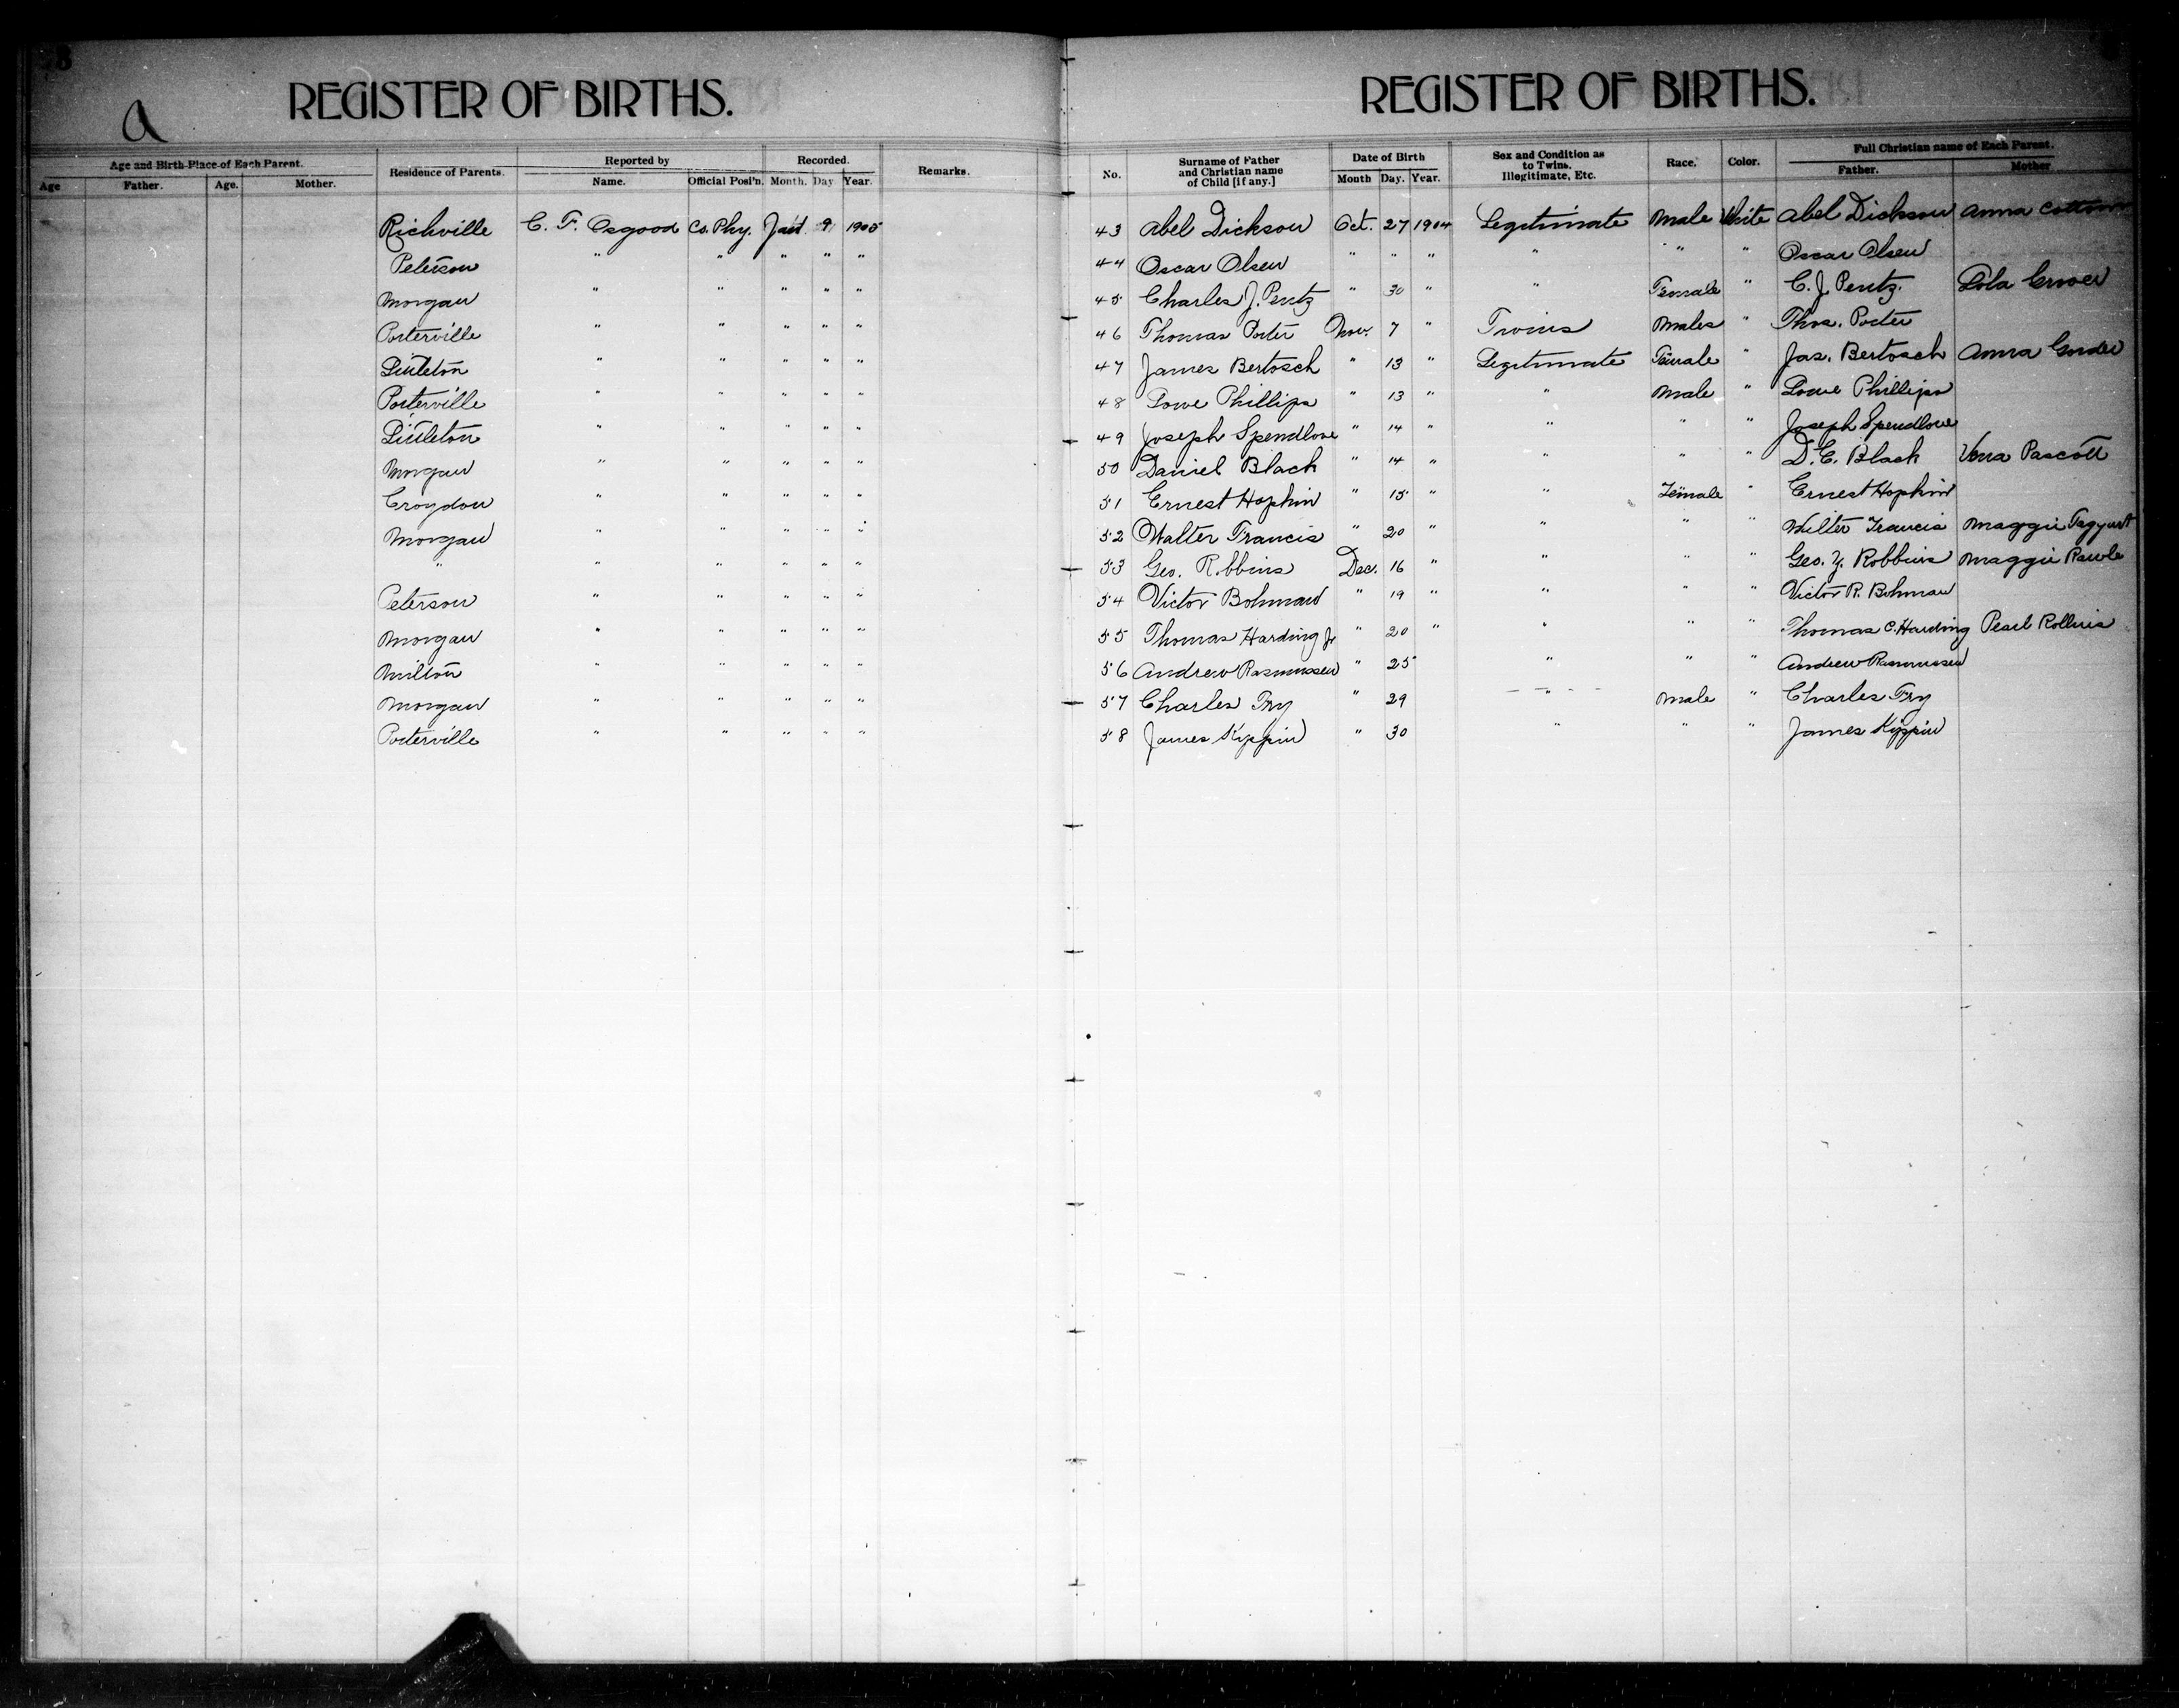 8
a
REGISTER OF BIRTHS.
Age and Birth-Place of Each Parent. Residence of Parents. Reported by Recorded. Remarks.
Age Father. Age. Mother. Name. Official Posi'n. Month. Day Year.
Richville C. F. Osgood Co. Phy. Jan 9 1905
Peterson " " " " "
Morgan " " " " "
Porterville " " " " "
Littleton " " " " "
Porterville " " " " "
Littleton " " " " "
Morgan " " " " "
Croydon " " " " "
Morgan " " " " "
" " " " " "
Peterson " " " " "
Morgan " " " " "
Milton " " " " "
Morgan " " " " "
Porterville " " " " "
REGISTER OF BIRTHS.
No. Surname of Father and Christian name of Child [if any.] Date of Birth Sex and Condition as to Twins, Illegitimate, Etc. Race. Color. Full Christian name of Each Parent.
Month Day. Year. Father. Mother
43 Abel Dickson Oct. 27 1904 Legitimate Male White Abel Dickson Anna
44 Oscar Olsen " " " " " " Oscar Olsen
45 Charles J. Pentz " 30 " " Female " C. J. Pentz. Lola
46 Thomas Porter Nov. 7 " Twins Males " Thos. Porter
47 James Bertosch " 13 " Legitimate Female " Jas. Bertosch Anna
48 Lowe Phillips " 13 " " Male " Lowe Phillips
49 Joseph Spendlove " 14 " " " " Joseph Spendlove
50 Daniel Black " 14 " " " " D. E. Black Pascott
51 Ernest Hopkin " 15 " " Female " Ernest Hopkin
52 Walter Francis " 20 " " " " Walter Francis Maggie
53 Geo. R.bbins Dec. 16 " " " " Geo. Y. Robbins Maggie Rawle
54 Victor Bohman " 19 " " " " Victor R. Bohman
55 Thomas Harding Jr " 20 " " " " Thomas C. Harding Pearl Rollins
56 Andrew Rasmussen " 25 " " " Andrew Rasmussen
57 Charles Fry " 29 " Male " Charles Fry
58 James Kippin " 30 " " " James Kippin